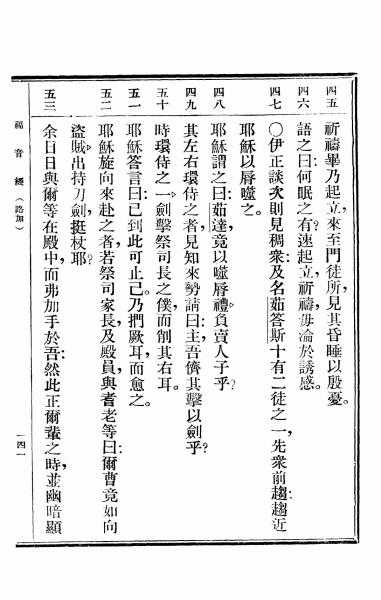 四五 祈禱畢乃起立、來至門徒、所見其昏睡以殷憂。
四六 語之曰、何眠之有?速起立祈禱、毋淪於誘感。
四七 〇伊正談次、則見稠衆、及名茹答斯十有二徒之一、先衆前趨、趨近
耶穌以脣噬之。
四八 耶穌謂之曰、茹達、竟以噬脣禮負賣人子乎?
四九 其左右環侍之者、見知來勢、請曰、主、吾儕其擊以劍乎?
五十 時環侍之一、劍擊祭司長之僕、而削其右耳。
五一 耶穌答言曰、已到此可止已。乃捫厥耳而愈之。
五二 耶穌旋向來赴之者、若祭司家長、及殿員、與耆老等曰、爾曹竟如向
盜賊、出持刀劍挺杖耶?
五三 余日日與爾等在殿中、而弗加手於吾、然此正爾輩之時、並幽暗顯
福音經(路加) 一四一